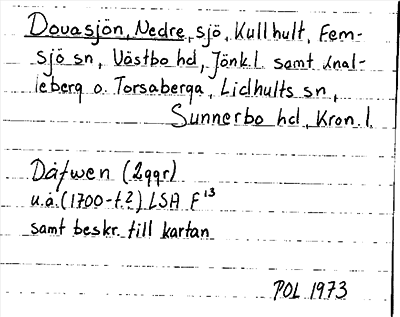 Dovasjön, Nedre, sjö, Kullhult, Fem-
sjö sn, Västbo hd, Jönk.l. samt Snal-
leberg o. Torsaberga, Lidhults sn,
Sunnerbo hd, Kron.l.
Dåfwen (2ggr)
u.å. (1700-t.?) LSA F 13
samt beskr. till kartan
POL 1973